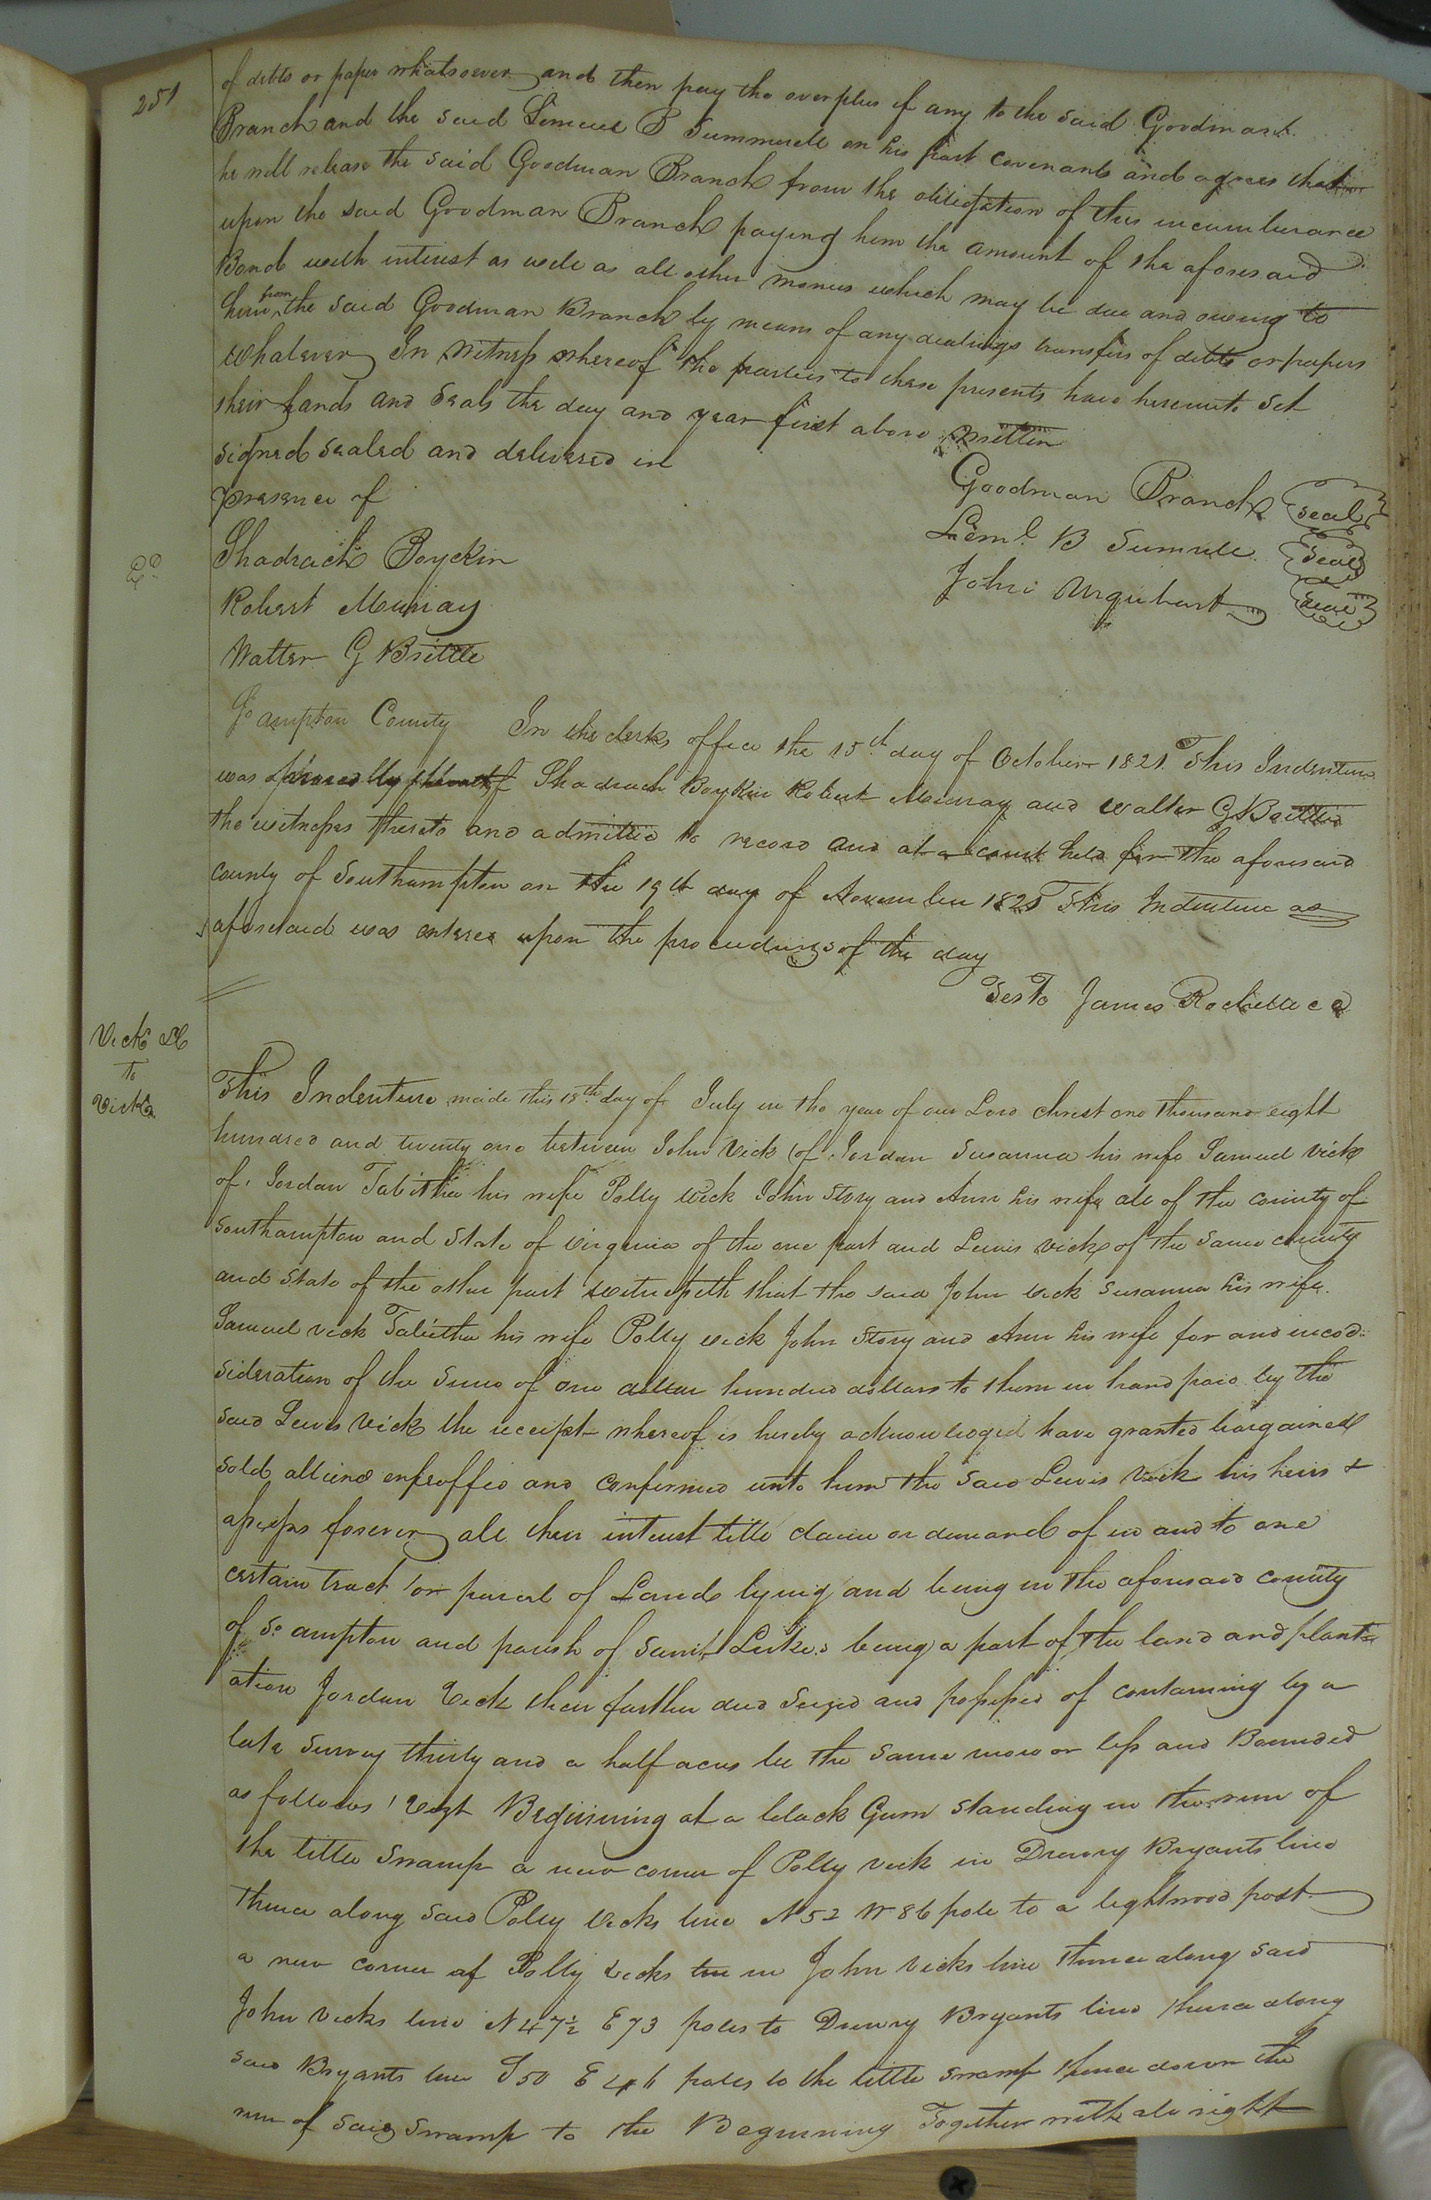 251
of debts or paper whatsoever and then pay the overplus if any to the said Goodman
Branch and the said Lemuel B Summerell on his part covenants and agrees that
he will release the said Goodman Branch from the obligation of this incumbrance
upon the said Goodman Branch paying him the amount of the aforesaid
Bond with interest as well as all other monies which may be due and oweing to
him from the said Goodman Branch by means of any dealings transfers of debts or papers
whatever In Witness whereof the parties to these presents have hereunto set
their hands and seals the day and year first above written
signed sealed and delivered in
presence of
Goodman Branch seal
Leml. B Sumrell seal
John Urquhart seal
Shadrach Boykin
Robert Murray
Walter G Brittle
So ampton County In the clerks office the 15th day of October 1821. This Indenture
was Shadrach Boykin Robert Murray and Walter G Brittle
the witnesses thereto and admitted to record and at a court held for the aforesaid
county of Southampton on the 19th day of November 1821 This Indenture as
aforesaid was entered upon the proceedings of the day
Teste James Rochelle
Vick &C
To
Vick
This Indenture made this 18th day of July in the year of our Lord Christ one thousand eight
hundred and twenty one between John Vick (of Jordan Susanna his wife Samuel Vick
of Jordan Tabitha his wife Polly Vick John Story and Ann his wife all of the county of
Southampton and State of Virginia of the one part and Lewis Vick of the same county
and State of the other part witnesseth that the said John Vick Susanna his wife
Samuel Vick Tabitha his wife Polly Vick John Story and Ann his wife for and in cod:
sideration of the sum of one dollar hundred dollars to them in hand paid by the
said Lewis Vick the receipt whereof is hereby acknowledged have granted bargained
sold aliened enfeoffed and confirmed unto him the said Lewis Vick his heirs &
assigns forever all their interest title claim or demand of in and to one
certain tract or parcel of Land lying and being in the aforesaid county
of So ampton and parish of Saint Lukes being a part of the land and plant=
ation Jordan Vick their farther decd Seized and possessed of containing by a
late survey thirty and a half acres be the same more or less and Bounded
as follows Beginning at a black Gum standing in the run of
the little swamp a new corner of Polly Vick in Drewry Bryants line
thence along said Polly Vicks line N 52 W 86 pole to a lightwood post
a new corner of Polly Vicks in John Vicks line thence along said
John Vicks line N 47½ E 73 poles to Drewry Bryants line thence along
said Bryants line S 50 E 46 poles to the little swamp thence down the
run of said swamp to the Beginning Together with all right